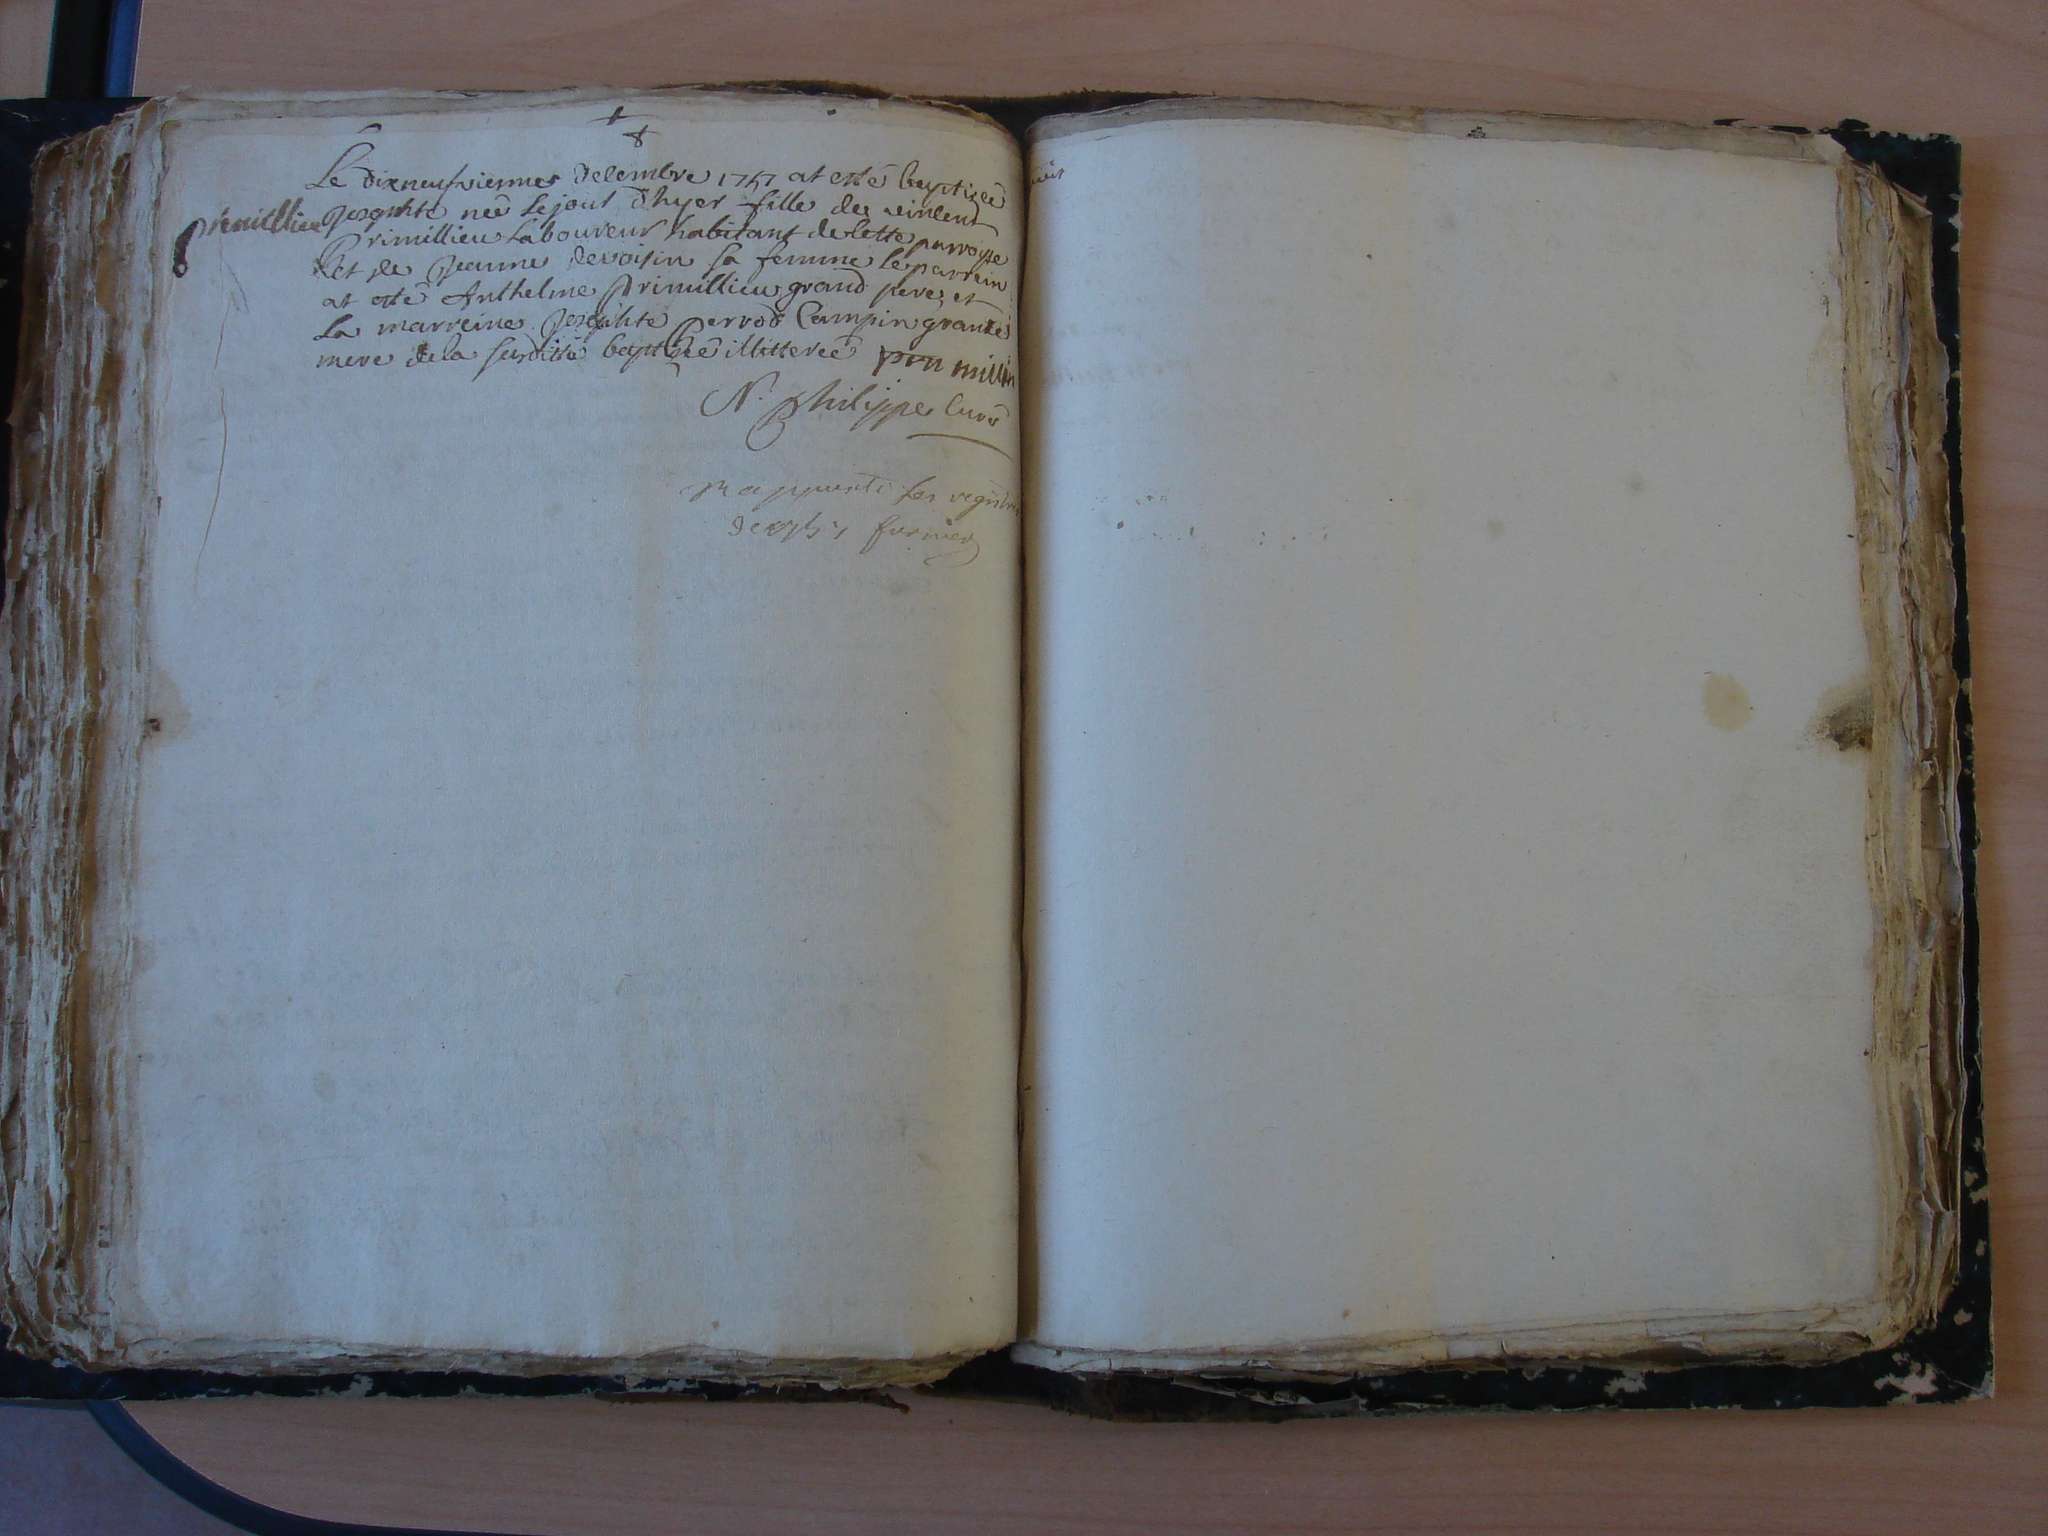 Le dixneufviemes decembre 1757 at esté baptizée
primillieu Josephte née le jour d'hyer fille de vincent
Primillieu laboureur habitant de cette parroisse
et de Jeanne devoisin sa femme le parrein
at esté Anthelme primillieu grand pere, et
la marreine Josephte Perrod Campin grande
mere de la susditte baptisée illitterée
N. Philippe Curé
les registres
de 1757